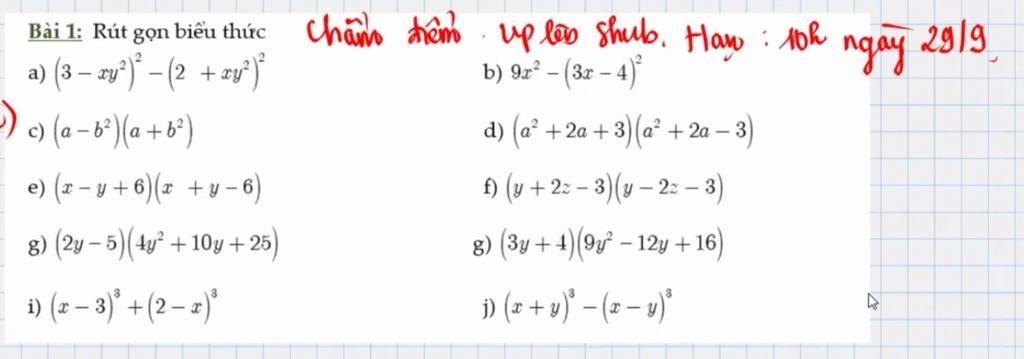 Bài 1: Rút gọn biểu thức chấm điểm. up lên Shub. Hạn: 10h ngày 29/9.
a) (3 − xy²)² − (2 + xy²)² b) 9x² − (3x − 4)²
c) (a − b²)(a + b²) d) (a² + 2a + 3)(a² + 2a − 3)
e) (x − y + 6)(x + y − 6) f) (y + 2z − 3)(y − 2z − 3)
g) (2y − 5)(4y² + 10y + 25) g) (3y + 4)(9y² − 12y + 16)
i) (x − 3)³ + (2 − x)³ j) (x + y)³ − (x − y)³